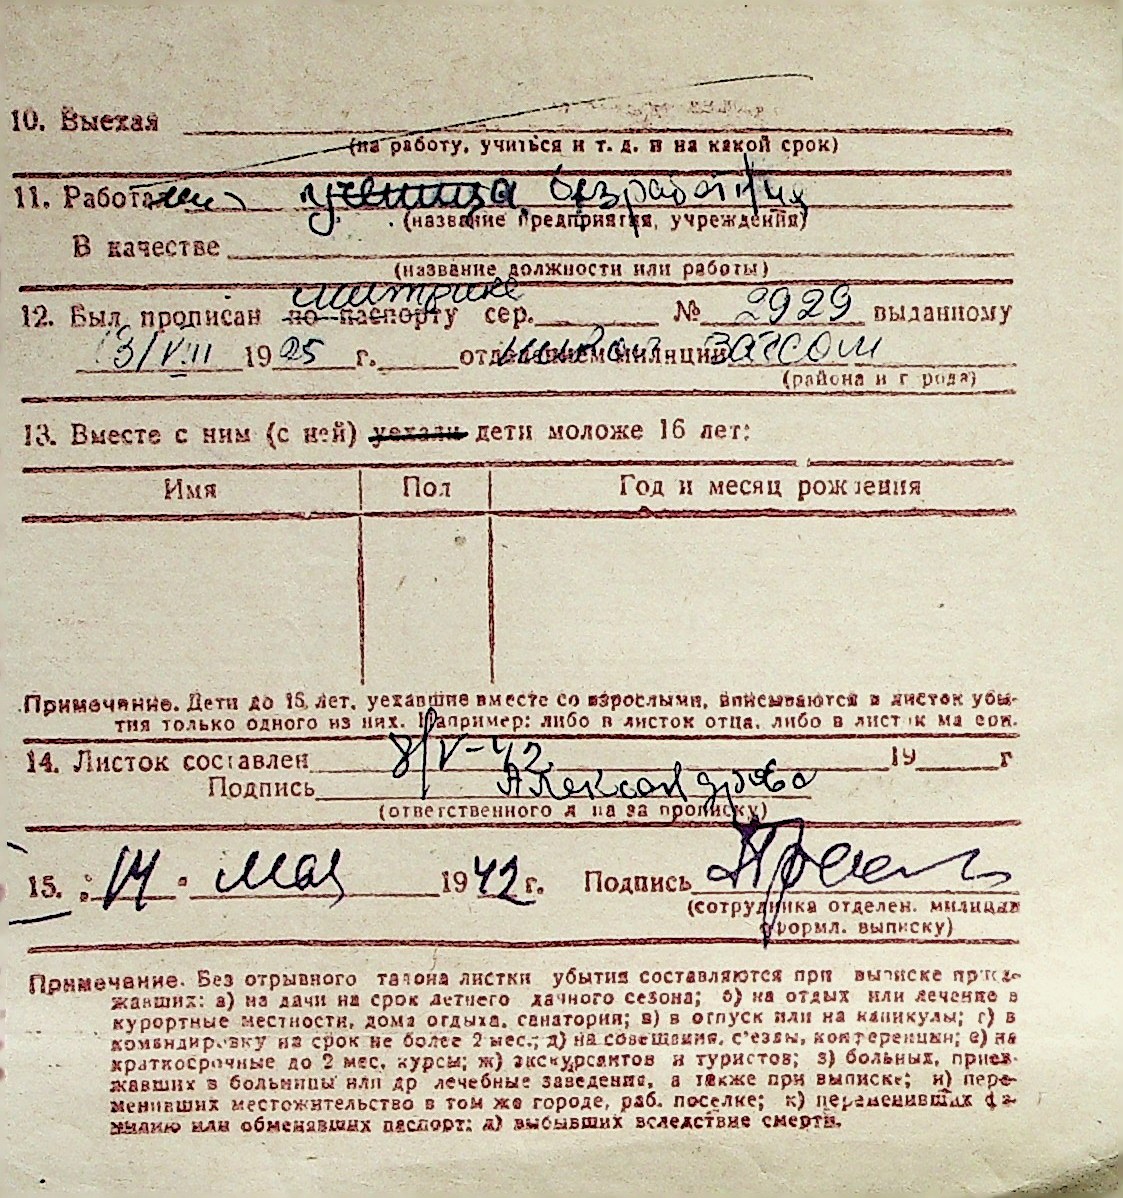 10. Выехал
(на работу, учиться и т. д. и на какой срок)
11. Работа ученица безработная
(название предприятия, учреждения)
В качестве
(название должности или работы)
метрике
12. Был прописан по паспорту сер. № 2929 выданному
13/VIII 1925 г. отделением милиции ЗАГСом
(района и города)
13. Вместе с ним (с ней) уехали дети моложе 16 лет:
Имя Пол Год и месяц рождения
Примечание. Дети до 16 лет, уехавшие вместе со взрослыми, вписываются в листок убы-
тия только одного из них. Например: либо в листок отца, либо в листок матери.
14. Листок составлен 8/V-42 19 г
Подпись Александрова
(ответственного лица за прописку)
15. 14 мая 1942 г. Подпись
(сотрудника отделен. милиции
оформл. выписку)
Примечание. Без отрывного талона листки убытия составляются при выписке приез-
жавших: а) на дачи на срок летнего дачного сезона; б) на отдых или лечение в
курортные местности, дома отдыха, санатории; в) в отпуск или на каникулы; г) в
командировку на срок не более 2 мес.; д) на совещания, с'езды, конференции; е) на
краткосрочные до 2 мес. курсы; ж) экскурсантов и туристов; з) больных, приез-
жавших в больницы или др лечебные заведения, а также при выписке; и) пере-
менивших местожительство в том же городе, раб. поселке; к) переменивших фа-
милию или обменявших паспорт; л) выбывших вследствие смерти.